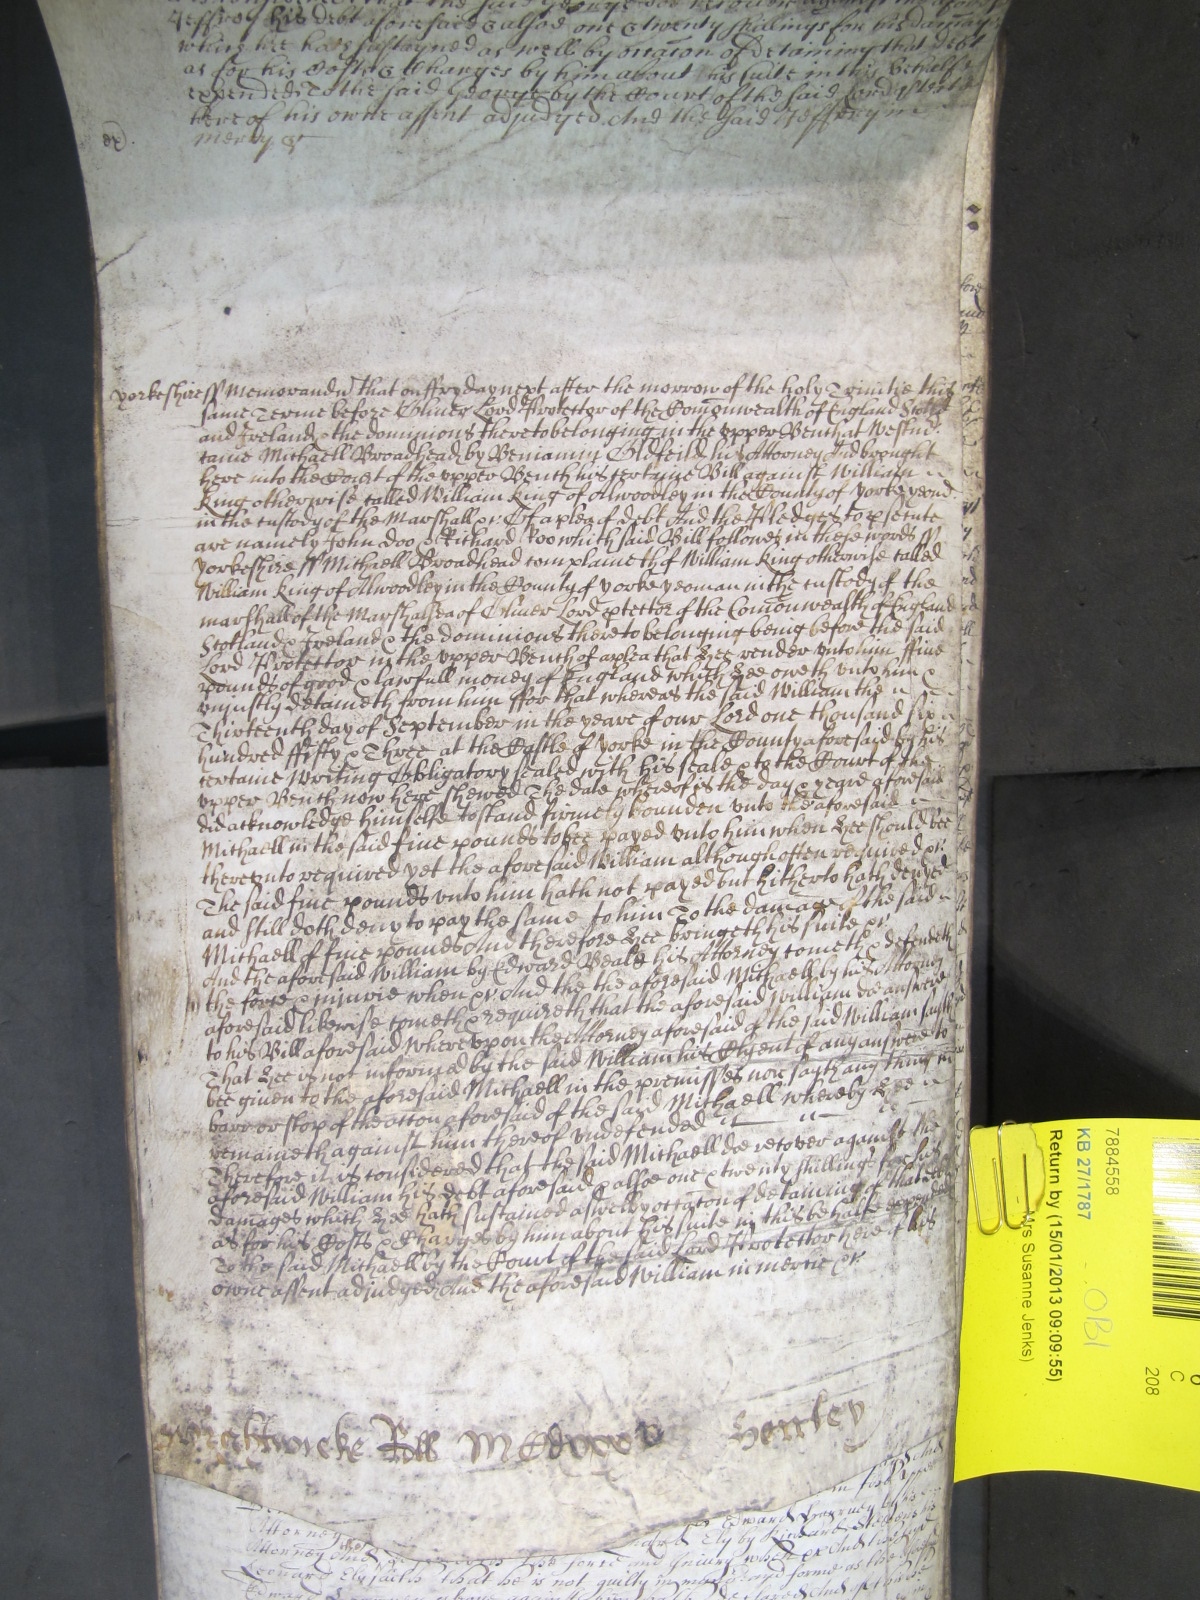 Jeffrey his debt aforesaid & alsoe one & twenty shillings for his damages
which hee hath sustayned as well by occasion of detaining that debt
as for his Costs & Charges by him about his suite in this behalfe
expended to the said George by the Court of the said Lord Protector
here of his owne assent adjudged And the said Jeffrey in
mercy &c
Yorkeshire ss Memorandum That on ffryday next after the morrow of the holy Trinitie this
same Terme before Oliver Lord Protector of the Comonwealth of England Scotland
and Ireland & the dominions thereto belonging in the upper Bench at Westmr
came Michaell Broadhead by Beniamin Oldfeild his Attorney And brought
here into the Court of the upper Bench his certaine Bill against William
King otherwise called William King of Alwoodley in the County of yorke yeoman
in the custody of the Marshall &c Of a plea of debt And the Pledges to psecute
are namely John Doo & Richard Roo which said Bill followes in these words ss
yorkeshire ss Michaell Broadhead complaineth of William King otherwise called
William King of Alwoodley in the County of yorke yeoman in the custody of the
marshall of the Marshalsea of Oliver Lord ptector of the Comonwealth of England
Scotland & Ireland & the dominions thereto belonging being before the said
Lord Protector in the upper Bench of a plea that hee render unto him ffive
pounds of good & lawfull money of England which hee oweth unto him &
uniustly detaineth from him ffor that whereas the said William the
Thirteenth day of September in the yeare of our Lord one thousand six
hundred ffifty & Three at the Castle of yorke in the County aforesaid by his
certaine Writing Obligatory sealed with his seale & to the Court of the
upper Bench now here shewed The date whereof is the day & yeare aforesaid
did acknowledge himselfe to stand firmely bounden unto the aforesaid
Michaell in the said five pounds to bee payed unto him when hee should bee
thereunto required yet the aforesaid William although often required &c
The said five pounds unto him hath not payed but hitherto hath denyed
and still doth deny to pay the same to him To the damage of the said
Michaell of five pounds And therefore hee bringeth his suite &c
And the aforesaid William by Edward Beale his Attorney cometh & defendeth
the force & iniurie when &c And the the aforesaid Michaell by his Attorney
aforesaid likewise cometh & requireth that the aforesaid William doe answere
to his Bill aforesaid Whereupon the Attorney aforesaid of the said William sayth
That hee is not informed by the said William his Clyent of any answere to
bee given to the aforesaid Michaell in the premisses nor sayth any thing in
barr or stop of the accon aforesaid of the said Michaell whereby hee
remaineth against him thereof undefended
Therefore it is considered that the said Michaell doe recover against the
aforesaid William his debt aforesaid & alsoe one & twenty shillings for his
damages which hee hath sustained aswell by occation of detaining of that debt
as for his Costs & Charges by him about his suite in this behalfe expended
To the said Michaell by the Court of the said Lord Protector here of his
owne assent adjudged And the aforesaid William in mercie &c
Wightwicke Roll Henley
7884558
KB 27/1787
Return by (15/01/2013 09:09:55)
Mrs Susanne Jenks)
OBI
C
208